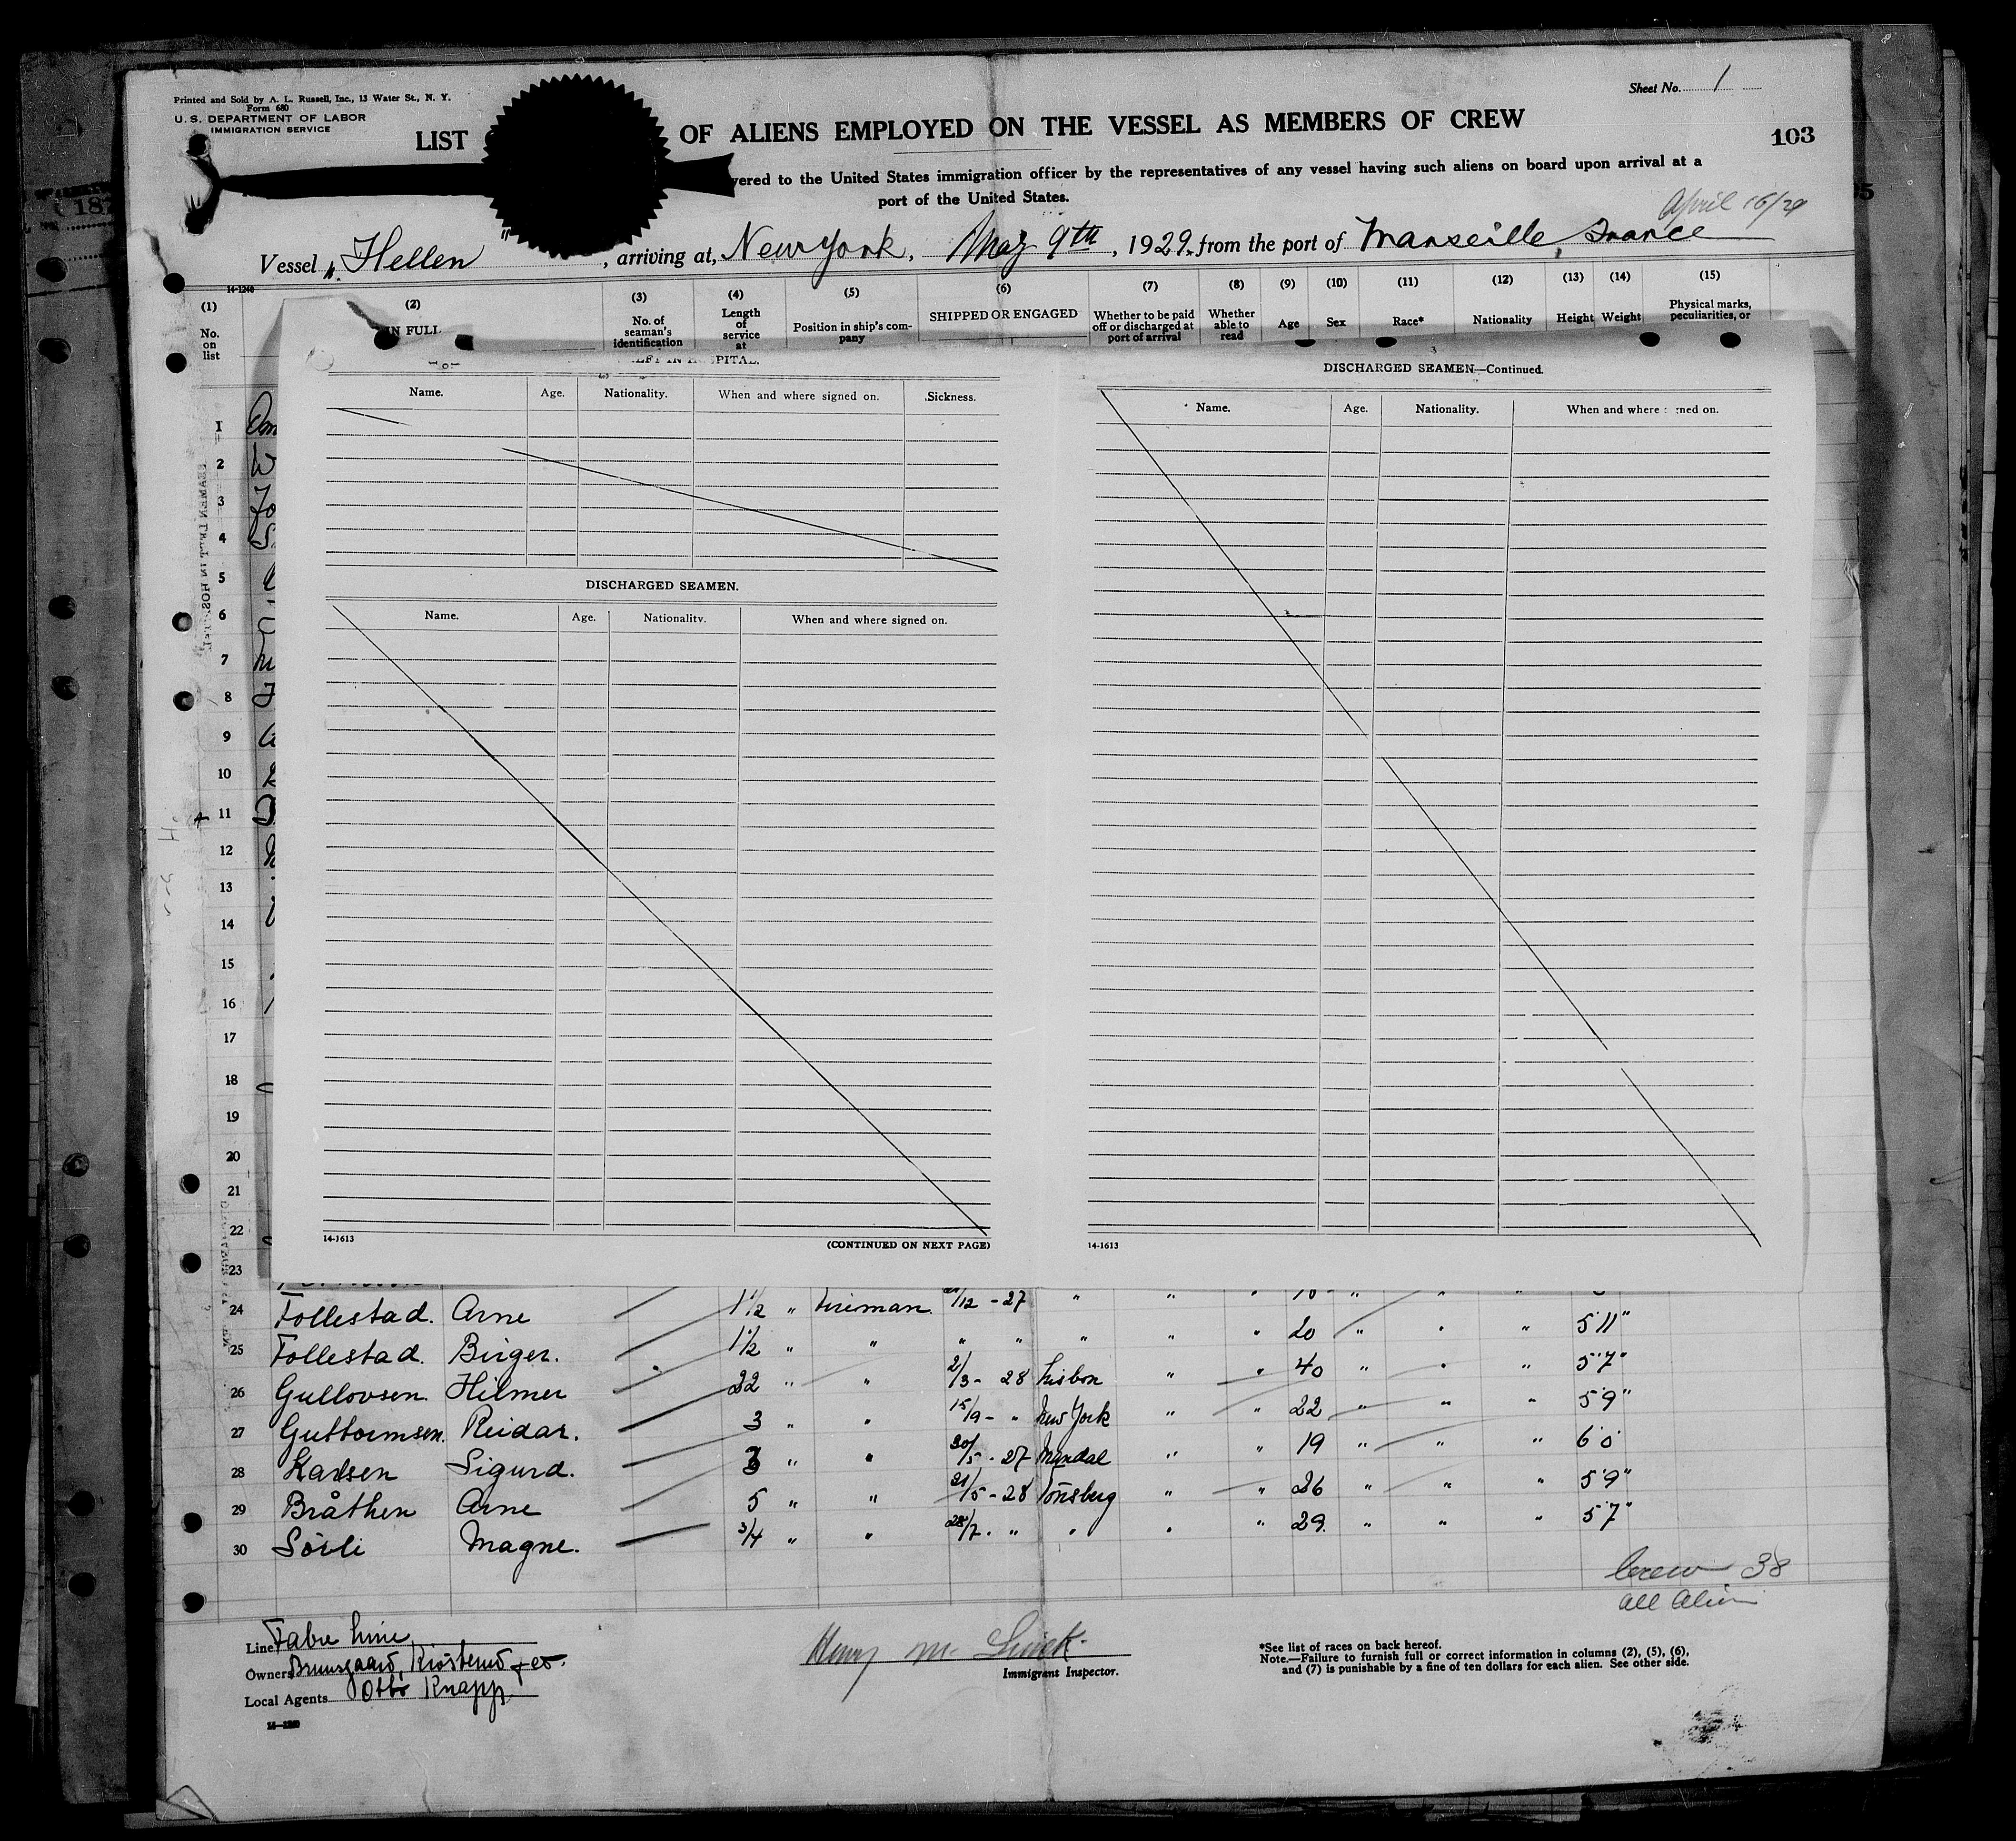 Sheet No. 1
Printed and Sold by A. L. Russell, Inc., 13 Water St., N. Y.
Form 680
U. S. DEPARTMENT OF LABOR
IMMIGRATION SERVICE
LIST OF ALIENS EMPLOYED ON THE VESSEL AS MEMBERS OF CREW
103
vered to the United States immigration officer by the representatives of any vessel having such aliens on board upon arrival at a
port of the United States.
April 16/29
Vessel "Hellen", arriving at, New York, May 9th, 1929, from the port of Marseille, France
14-1240
(1) (2) (3) (4) (5) (6) (7) (8) (9) (10) (11) (12) (13) (14) (15)
No. on list
IN FULL
No. of seaman's identification
Length of service at
Position in ship's company
SHIPPED OR ENGAGED
Whether to be paid off or discharged at port of arrival
Whether able to read
Age
Sex
Race*
Nationality
Height
Weight
Physical marks, peculiarities, or
LEFT IN HOSPITAL.
Name. Age. Nationality. When and where signed on. Sickness.
DISCHARGED SEAMEN.
Name. Age. Nationality. When and where signed on.
14-1613 (CONTINUED ON NEXT PAGE)
3
DISCHARGED SEAMEN—Continued.
Name. Age. Nationality. When and where signed on.
14-1613
1
2
3
4
5
6
7
8
9
10
11
12
13
14
15
16
17
18
19
20
21
22
23
24 Follestad. Arne 1½ " Fireman /12 - 27 " " " " " "
25 Follestad. Birger. 1½ " " " " " " " 20 " " " 5'11"
26 Gullovsen Hilmer 22 " " 2/3 - 28 Lisbon " " 40 " " " 5'7"
27 Guttormsen. Reidar. 3 " " 15/9 - " New York " " 22 " " " 5'9"
28 Karlsen Sigurd. 3 " " 30/5 - 27 Mandal " " 19 " " " 6'0"
29 Bråthen Arne 5 " " 21/5 - 28 Tönsberg " " 26 " " " 5'9"
30 Sörli Magne. 3/4 " " 28/7 . " " " " 29. " " " 5'7"
Crew 38
all Alien
Line Fabre Line
Owners Bruusgaard, Kiøsterud & Co.
Local Agents Otto Knapp
14-1240
Henry M.
Immigrant Inspector.
*See list of races on back hereof.
Note.—Failure to furnish full or correct information in columns (2), (5), (6),
and (7) is punishable by a fine of ten dollars for each alien. See other side.